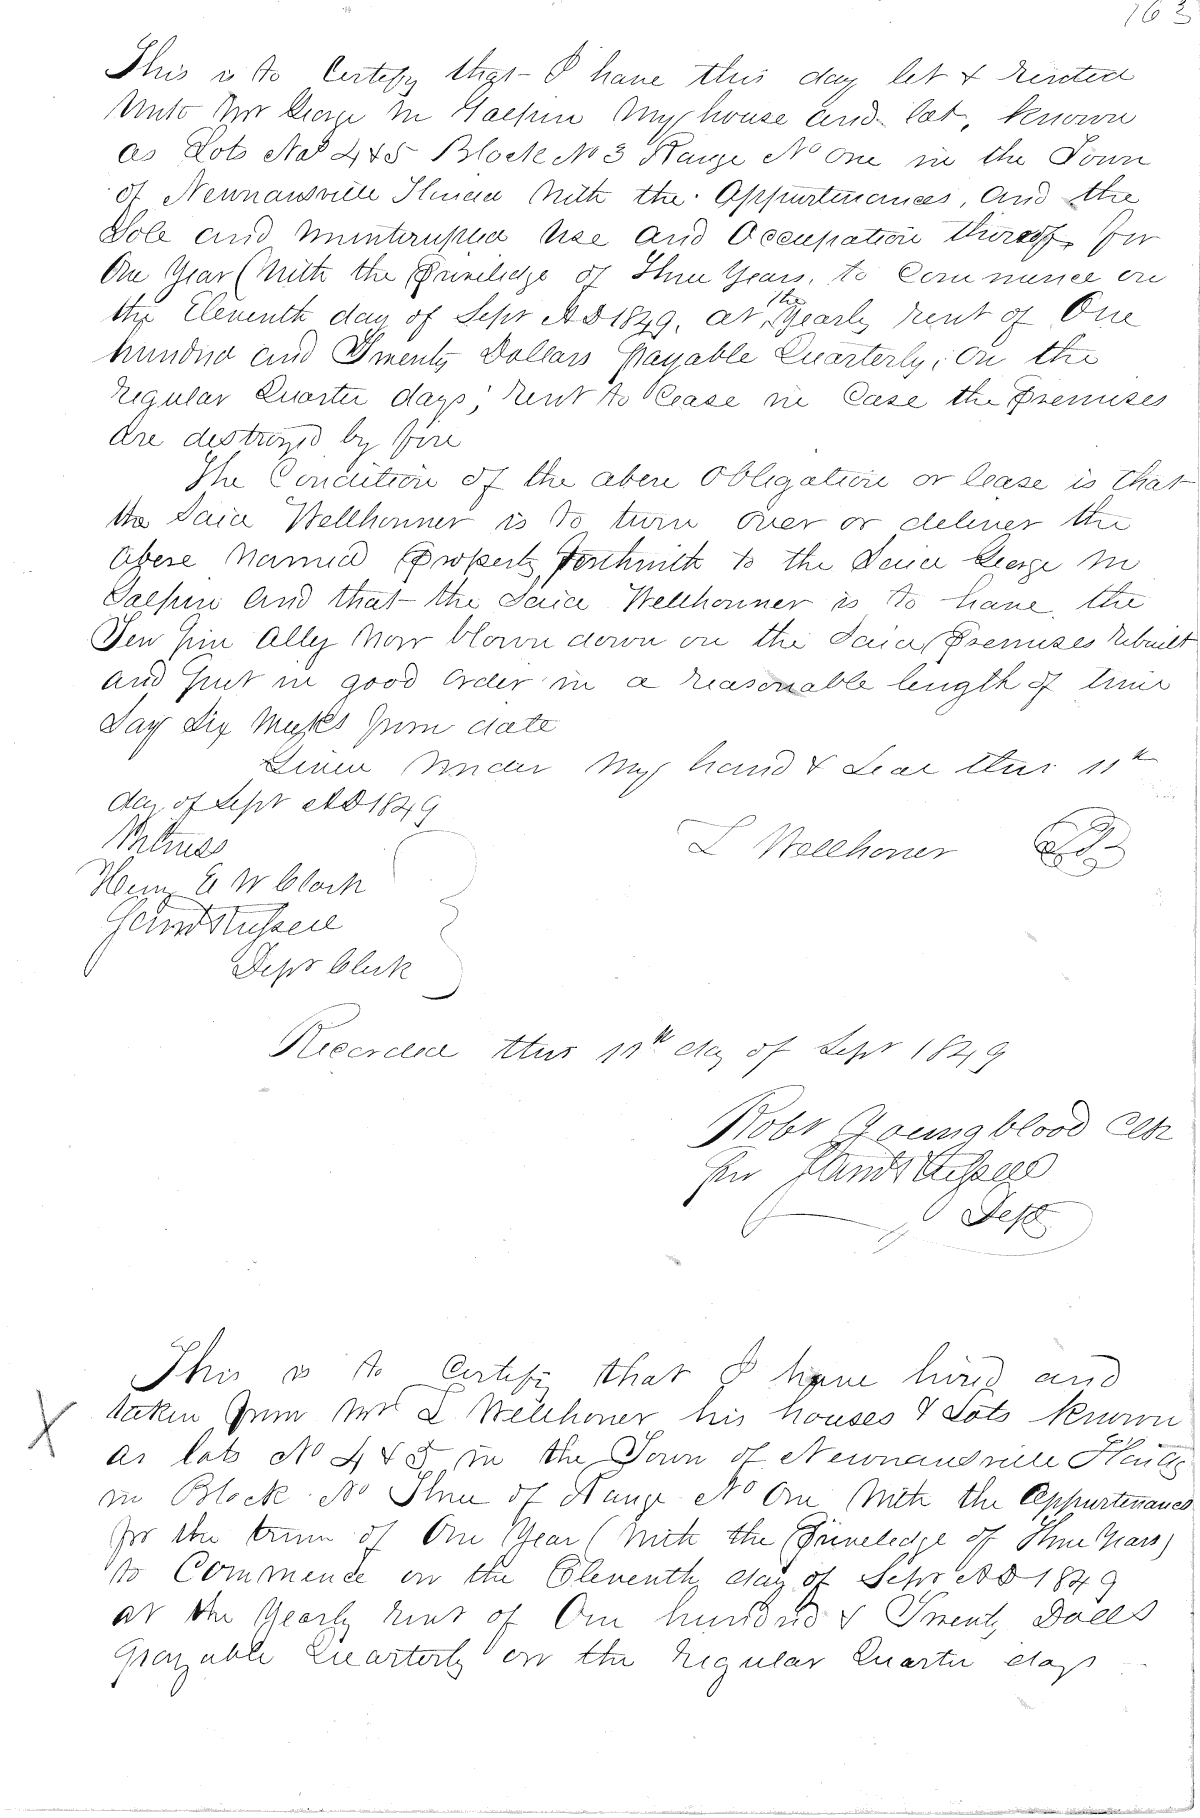 163
This is to Certify that I have this day let & rented
Unto Mr George M Galphin My house and lot, known
as Lots Nos 4 & 5 Block No 3 Range No One in the Town
of Newnansville Florida With the Appurtenances, and the
Sole and Uninterupted Use and Occupation thereof, for
One Year (With the Priviledge of Three Years, to Commence on
the Eleventh day of Sept AD 1849, at the Yearly rent of One
hundred and Twenty Dollars payable Quarterly, on the
regular Quarter days; rent to Cease in Case the Premises
are destroyed by fire
The Condition of the above Obligation or lease is that
the Said Wellhonner is to turn over or deliver the
above Named Property forthwith to the Said George M
Galphin and that the Said Wellhonner is to have the
Ten pin Ally Now blown down on the Said Premises rebuilt
and put in good order in a reasonable length of time
Say Six Weeks from date
Given Under My hand & Seal this 11th
day of Sept AD 1849
Witness
L Wellhoner
Henry E W Clark
Russell
Dept Clerk
Recorded this 11th day of Sept 1849
Robt Youngblood Clk
Per Russell
Dept
This is to Certify that I have hired and
taken from Mr L Wellhoner his houses & Lots known
X
as lots No 4 & 5 in the Town of Newnansville Florida
in Block No Three of Range No One With the Appurtenances
for the term of One Year (With the Priveledge of Three Years)
to Commence on the Eleventh day of Sept AD 1849
at the Yearly rent of One hundred & Twenty Dolls
payable Quarterly on the regular Quarter days